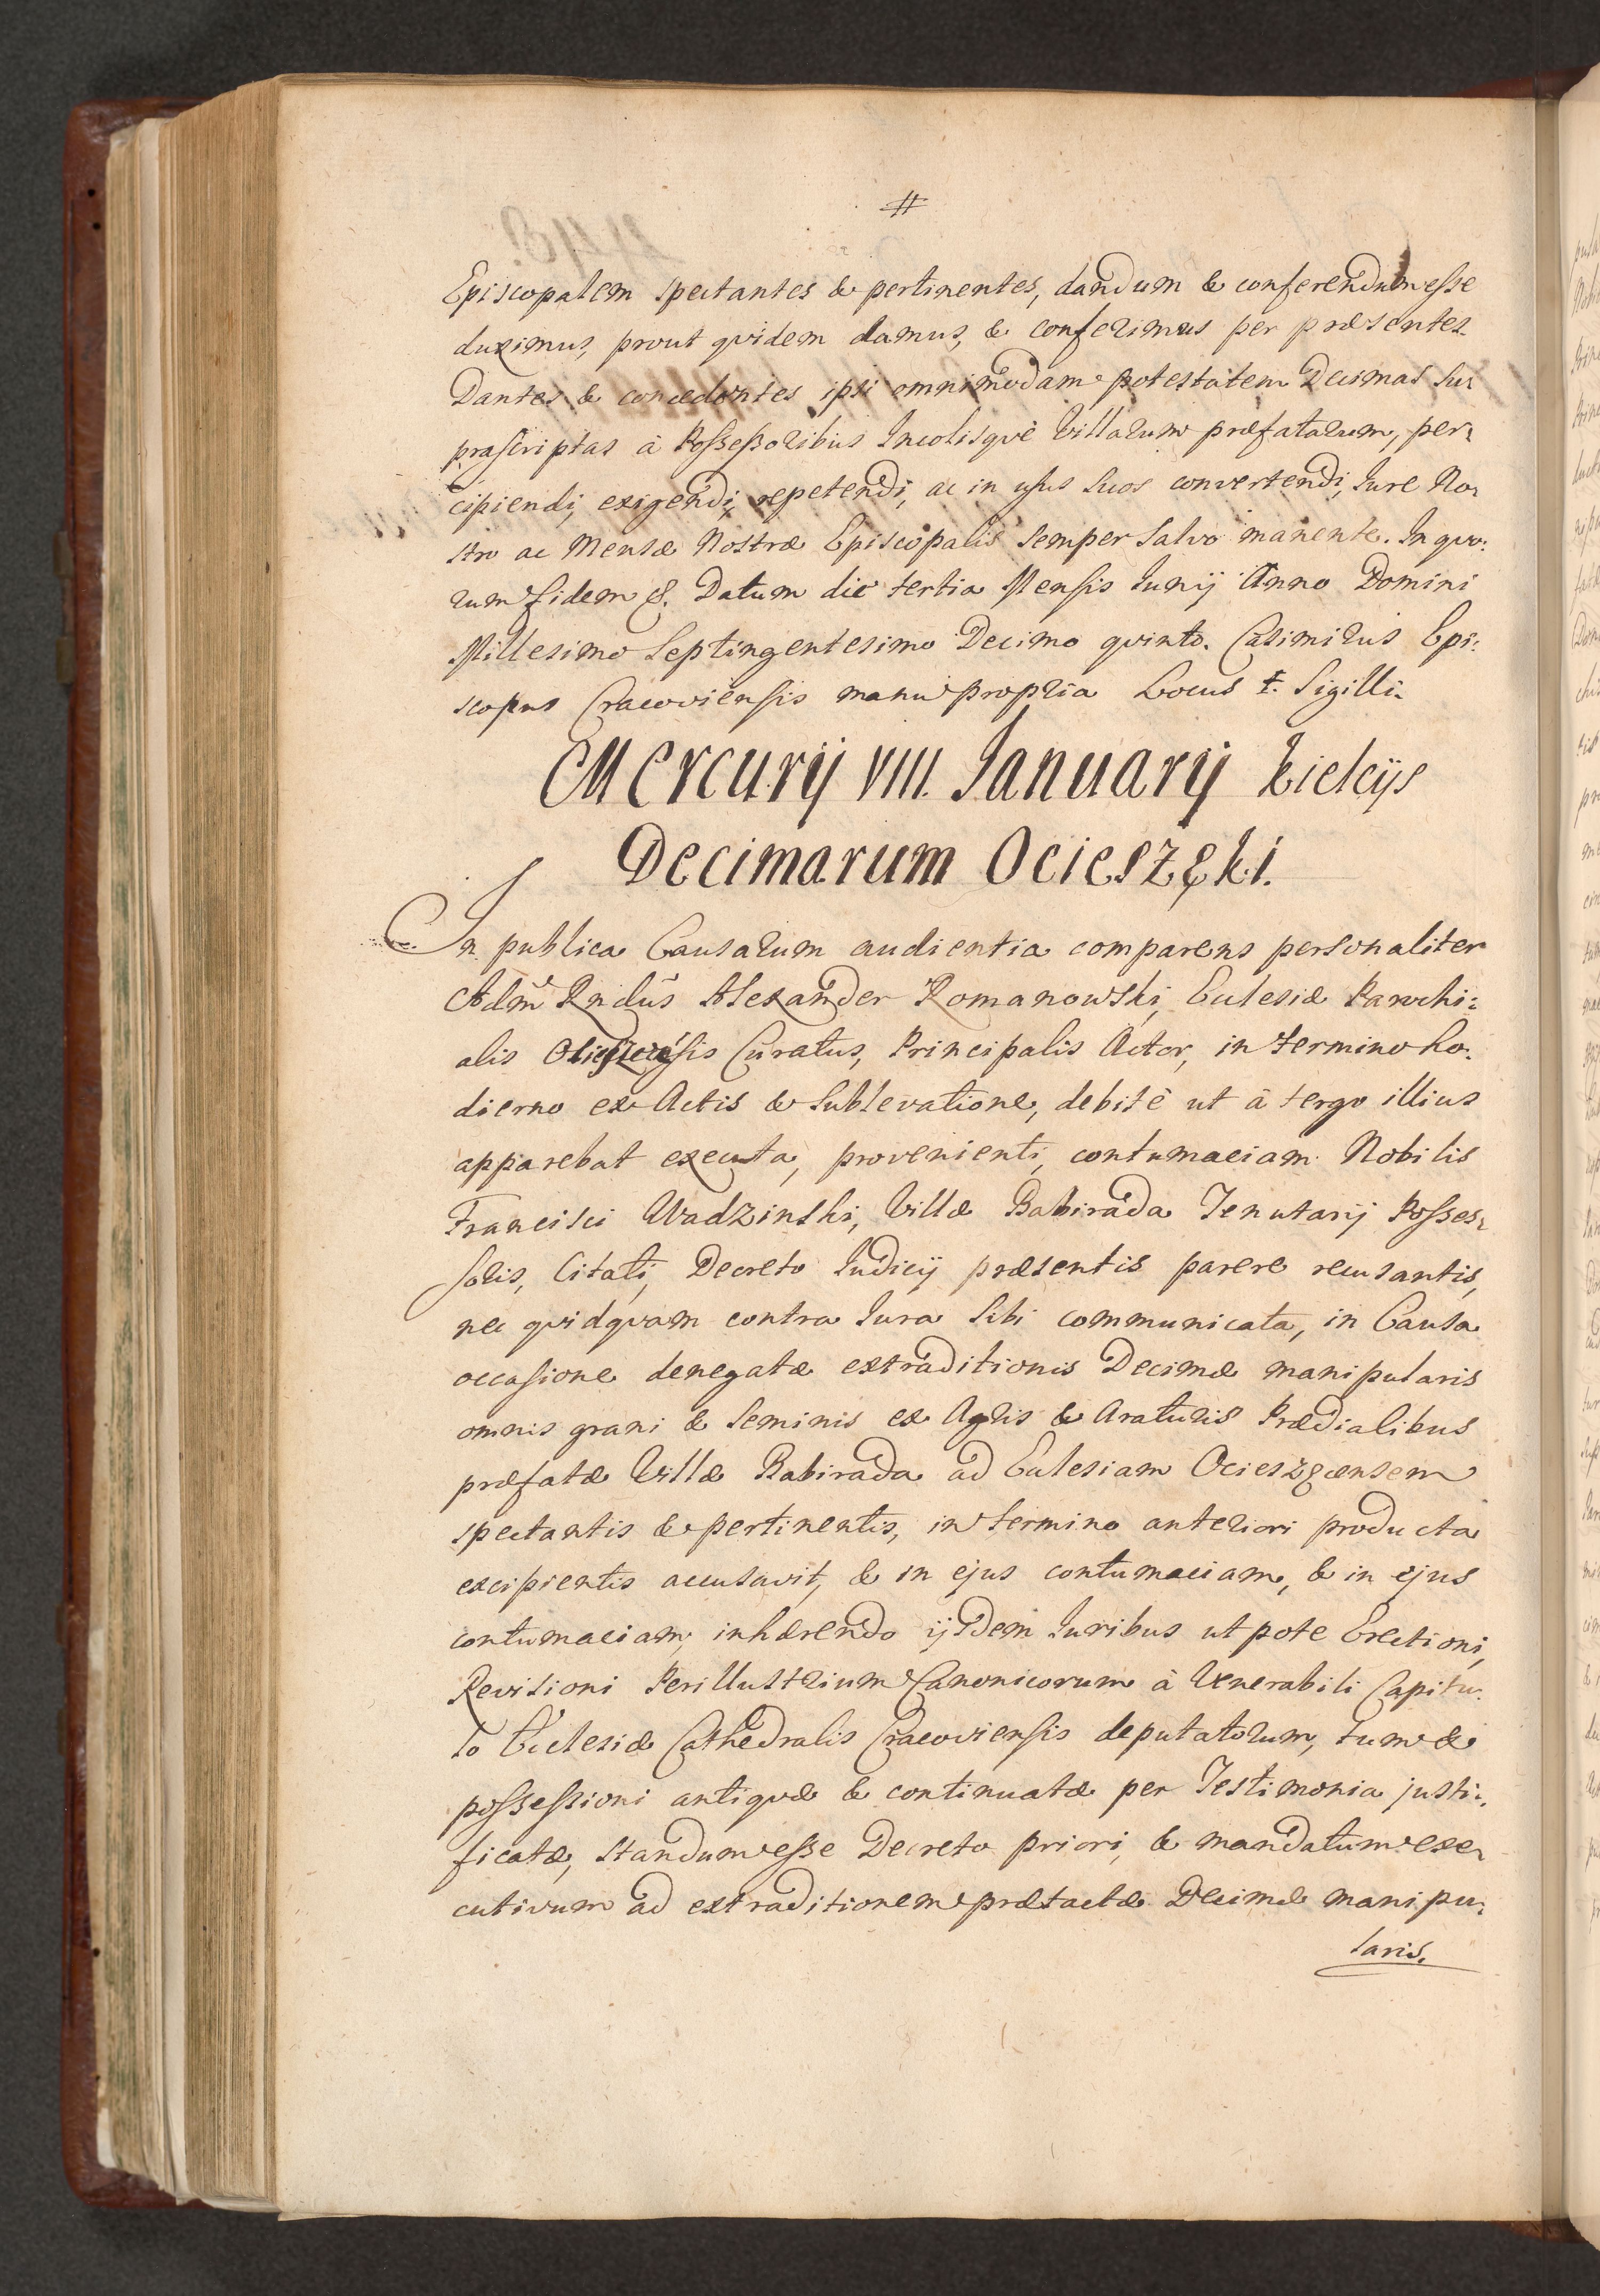 #
Episcopalem spectantes & pertinentes, dandum & conferendum esse
duximus, prout qvidem damus, & conferimus per præsentes
Dantes & concedentes ipsi omnimodam potestatem Decimas su:
prascriptas à Possessoribus Incolisqvè Villarum præfatarum, per:
cipiendi, exigendi, repetendi, ac in usus suos convertendi, Iure No:
stro ac Mensæ Nostræ Episcopalis semper salvo manente. In qvo:
rum fidem &. Datum die tertia Mensis Iunij Anno Domini
Millesimo Septingentesimo Decimo qvinto. Casimirus Epi:
scopus Cracoviensis manu propria Locus ‡. Sigilli.
Mercurij VIII. Ianuarij Kielcijs
Decimarum Ocieszęki.
In publica Causarum audientia comparens personaliter
Adm Rndus Alexander Romanowski, Eclesiæ Parochi:
alis Curatus, Principalis Actor, in termino ho:
dierno ex Actis & Sublevatione, debitè ut à tergo illius
apparebat executa, provenienti, contumaciam Nobilis
Francisci Wadzinski, Villæ Babirada Tenutarij Posses:
soris, Citati, Decreto Iudicij præsentis parere recusantis,
nec qvidqvam contra Iura sibi communicata, in Causa
occasione denegatæ extraditionis Decimæ manipularis
omnis grani & seminis ex Agris & Araturis Prædialibus
præfatæ Villæ Rabirada ad Eclesiam Ocieszęcensem
spectantis & pertinentis, in termino anteriori producta
excipientis accusavit, & in ejus contumaciam, & in ejus
contumaciam, inhærendo ijsdem Iuribus utpote Erectioni,
Revisioni Perillustrium Canonicorum à Venerabili Capitu:
lo Ecclesiæ Cathedralis Cracoviensis deputatorum, tum &
possessioni antiqvæ & continuatæ per Testimonia justi:
ficatæ, standum esse Decreto priori, & mandatum exe:
cutivum ad extraditionem prætactæ Decimæ manipu:
laris.